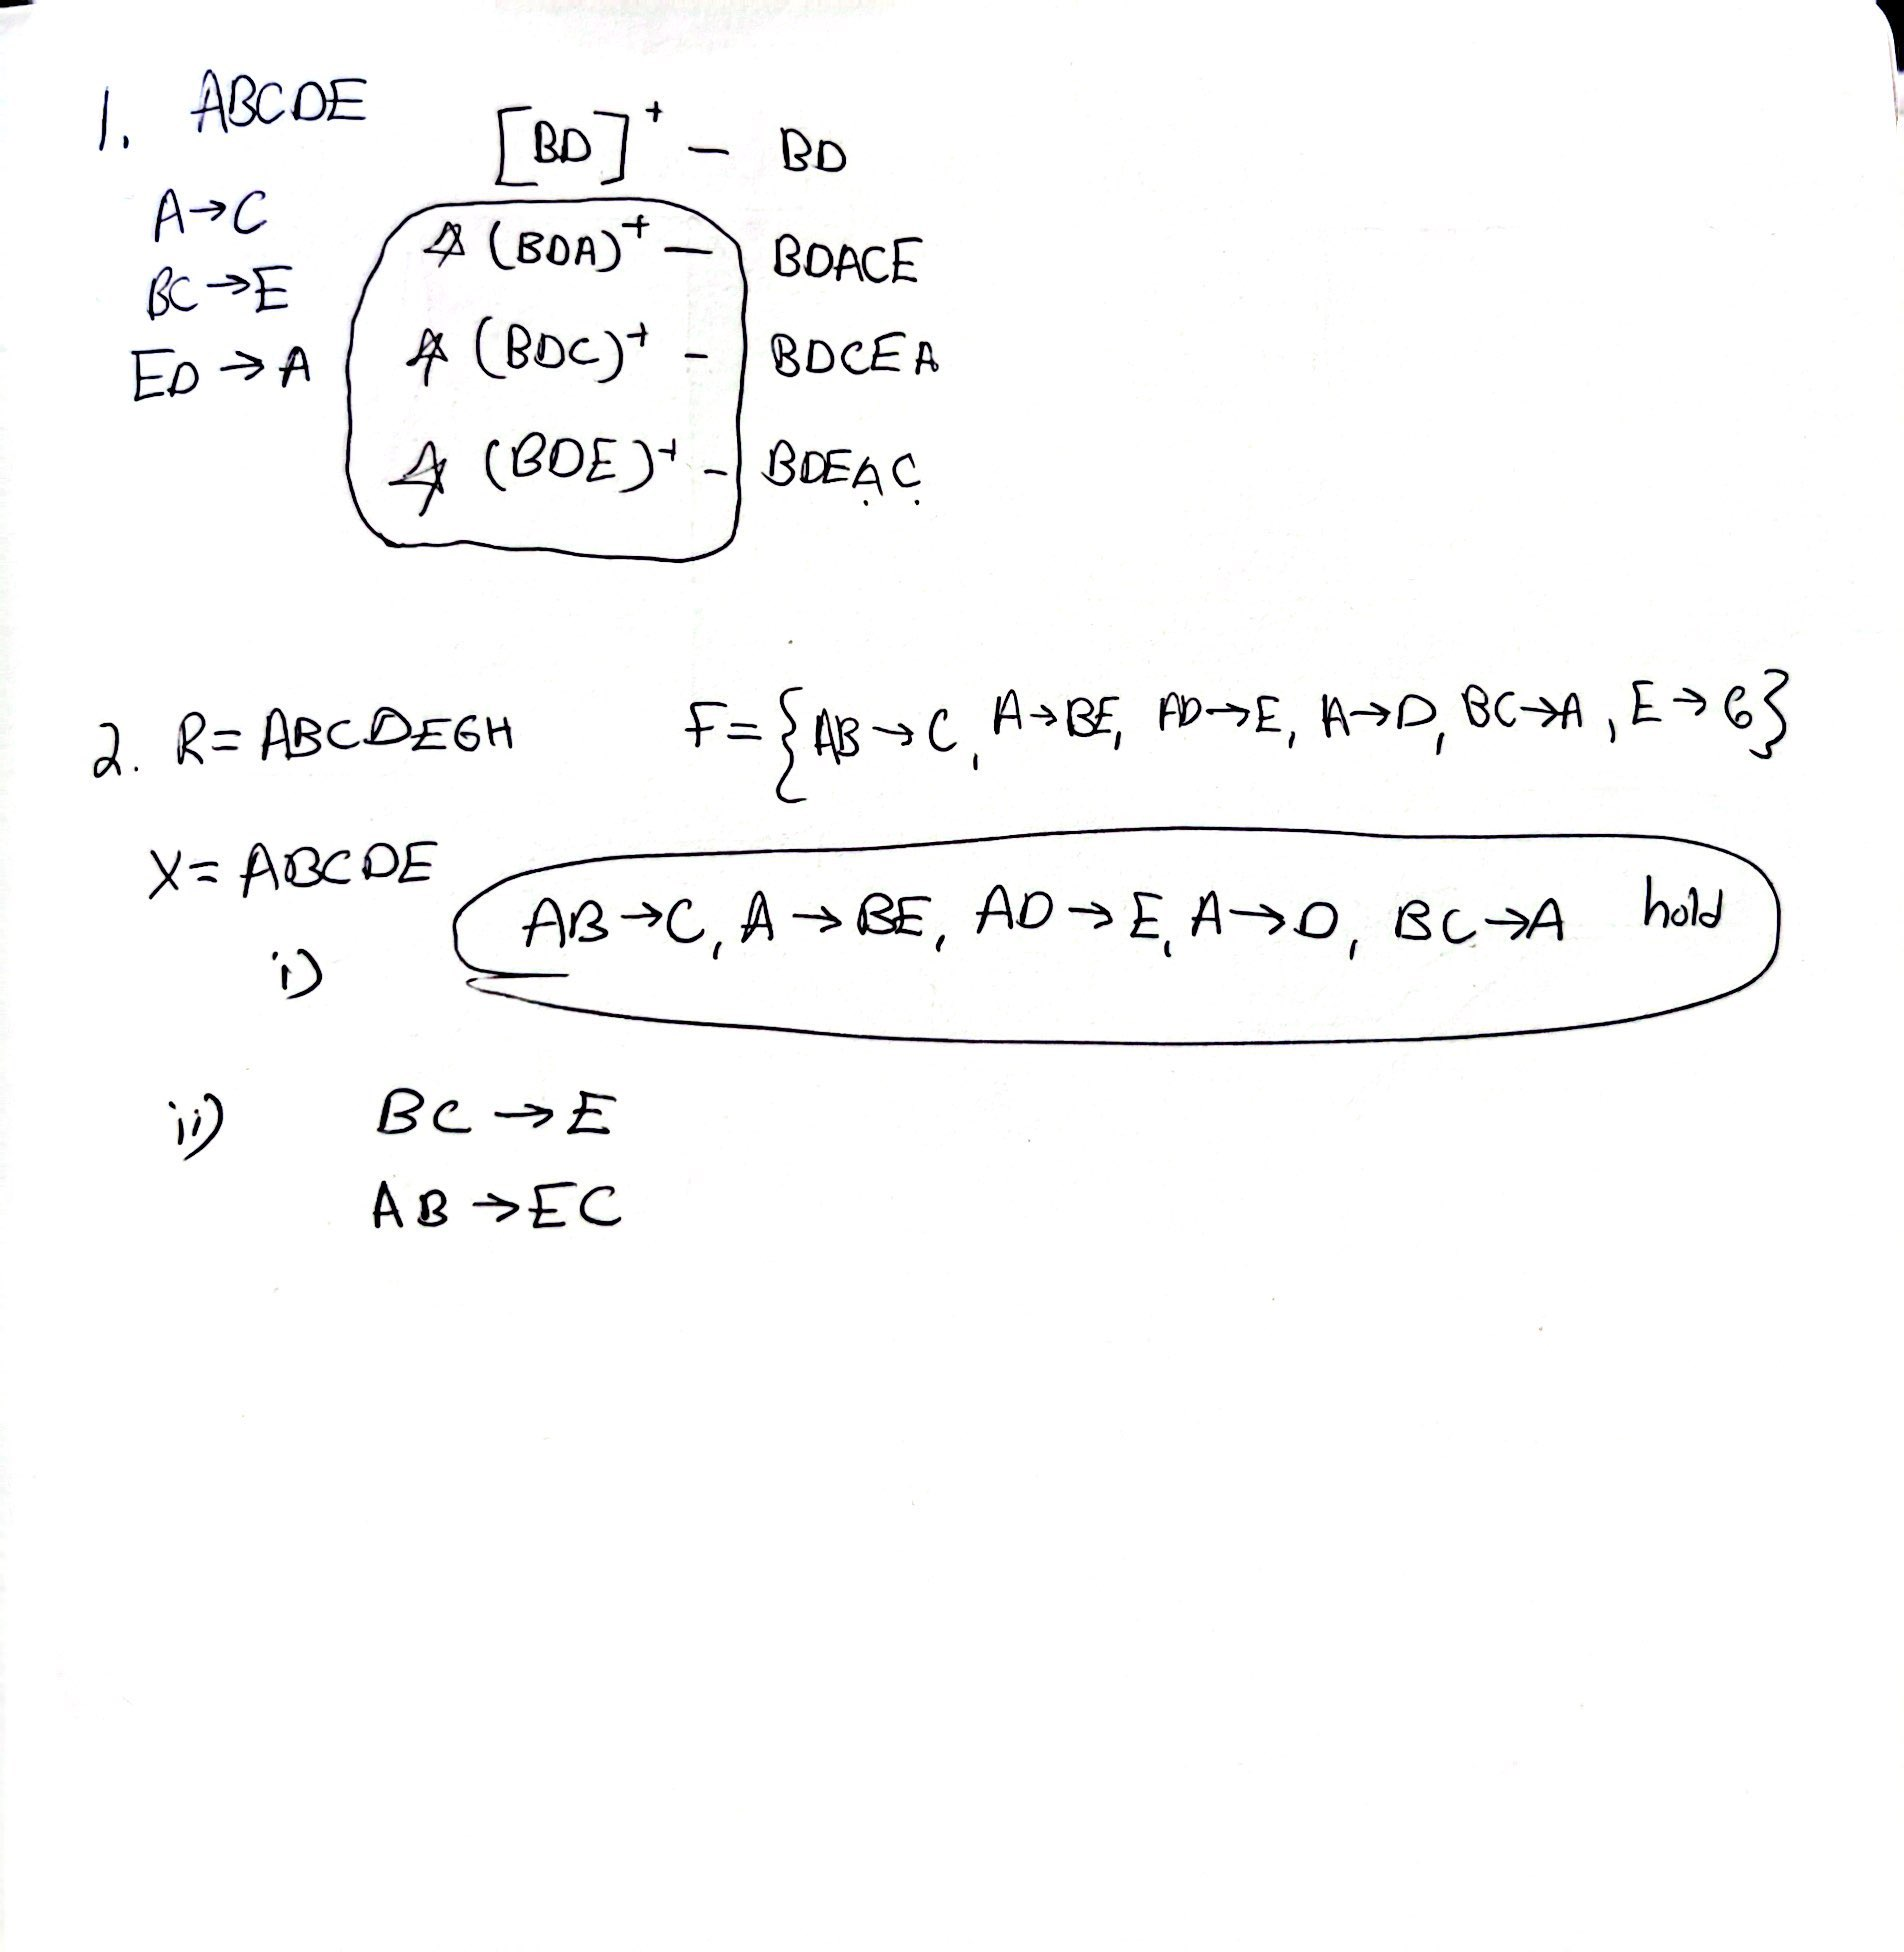 1. ABCDE
[BD]⁺ - BD
A→C
(BDA)⁺ - BDACE
BC→E
(BDC)⁺ - BDCEA
ED→A
(BDE)⁺ - BDEAC
2. R= ABCDEGH F={AB→C, A→BE, AD→E, A→D, BC→A, E→G}
X= ABCDE
i) AB→C, A→BE, AD→E, A→D, BC→A hold
ii) BC→E
AB→EC